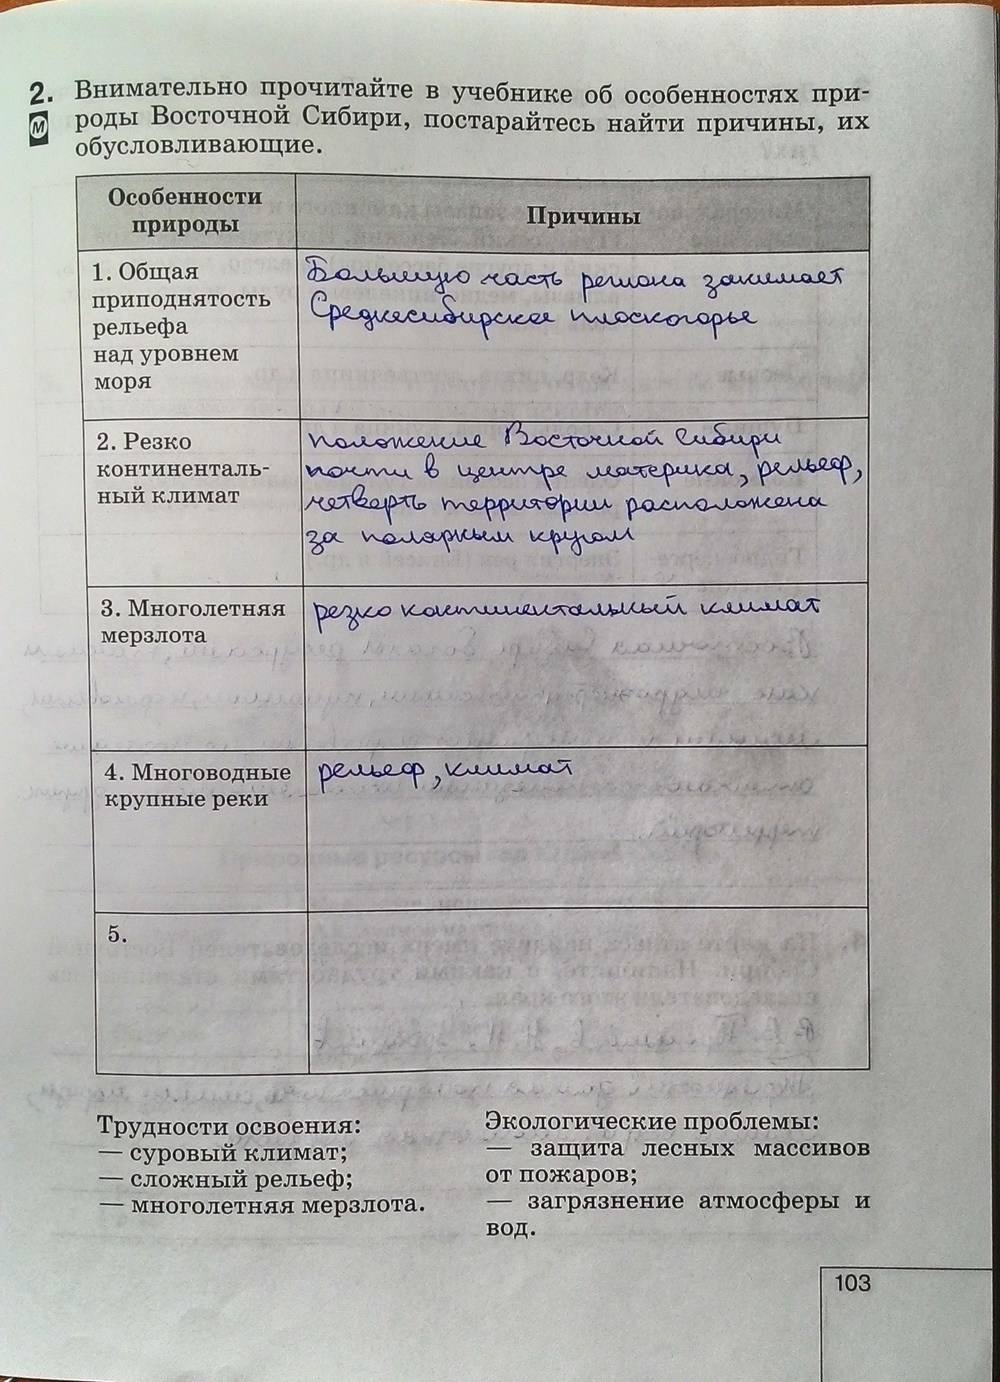 2. Внимательно прочитайте в учебнике об особенностях при-
М роды Восточной Сибири, постарайтесь найти причины, их
обусловливающие.
Особенности
природы
Причины
1. Общая
приподнятость
рельефа
над уровнем
моря
Большую часть региона занимает
Среднесибирское плоскогорье
2. Резко
континенталь-
ный климат
положение Восточной Сибири
почти в центре материка, рельеф,
четверть территории расположена
за полярным кругом
3. Многолетняя
мерзлота
резко континентальный климат
4. Многоводные
крупные реки
рельеф, климат
5.
Трудности освоения:
— суровый климат;
— сложный рельеф;
— многолетняя мерзлота.
Экологические проблемы:
— защита лесных массивов
от пожаров;
— загрязнение атмосферы и
вод.
103